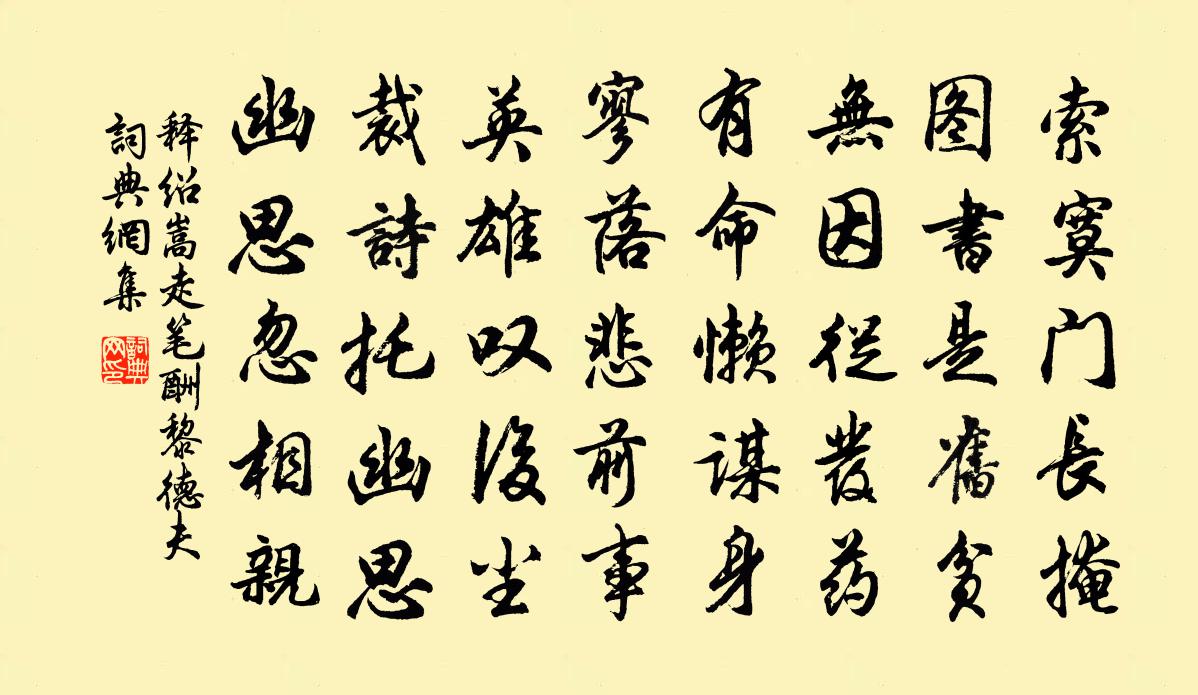 索寞门長掩
图書是舊貧
無因從發药
有命懒謀身
寥落悲前事
英雄叹後尘
裁詩托幽思
幽思忽相親
释绍嵩走笔酬黎德夫
詞典網集
詞典
网印